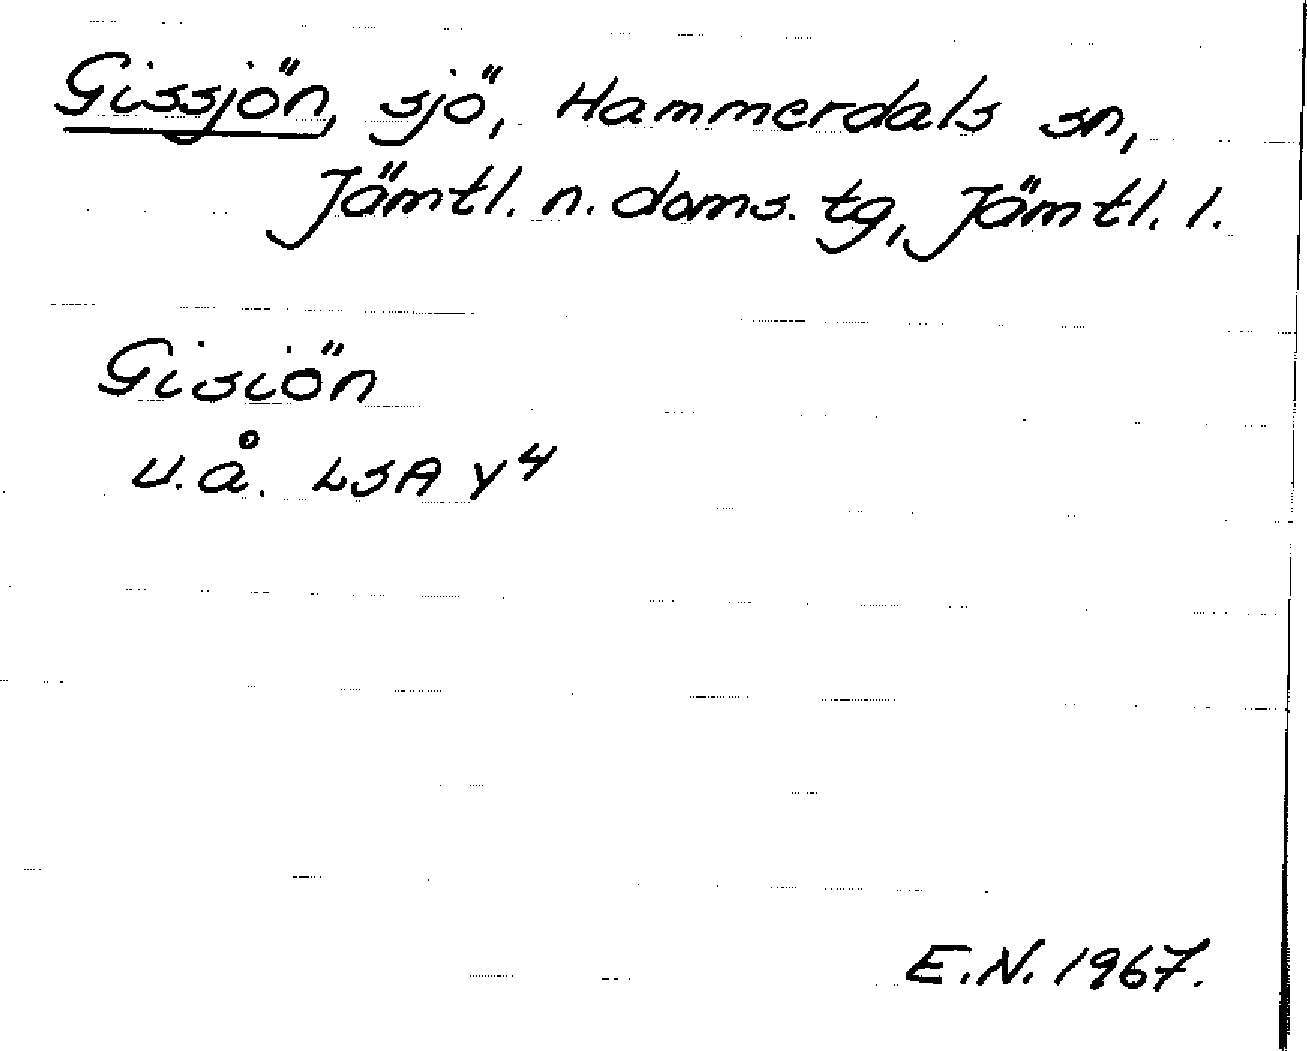 Gissjön, sjö, Hammerdals sn,
Jämtl. n. doms. tg, Jämtl. l.
Gisiön
u.å. LSA Y4
E.N. 1967.